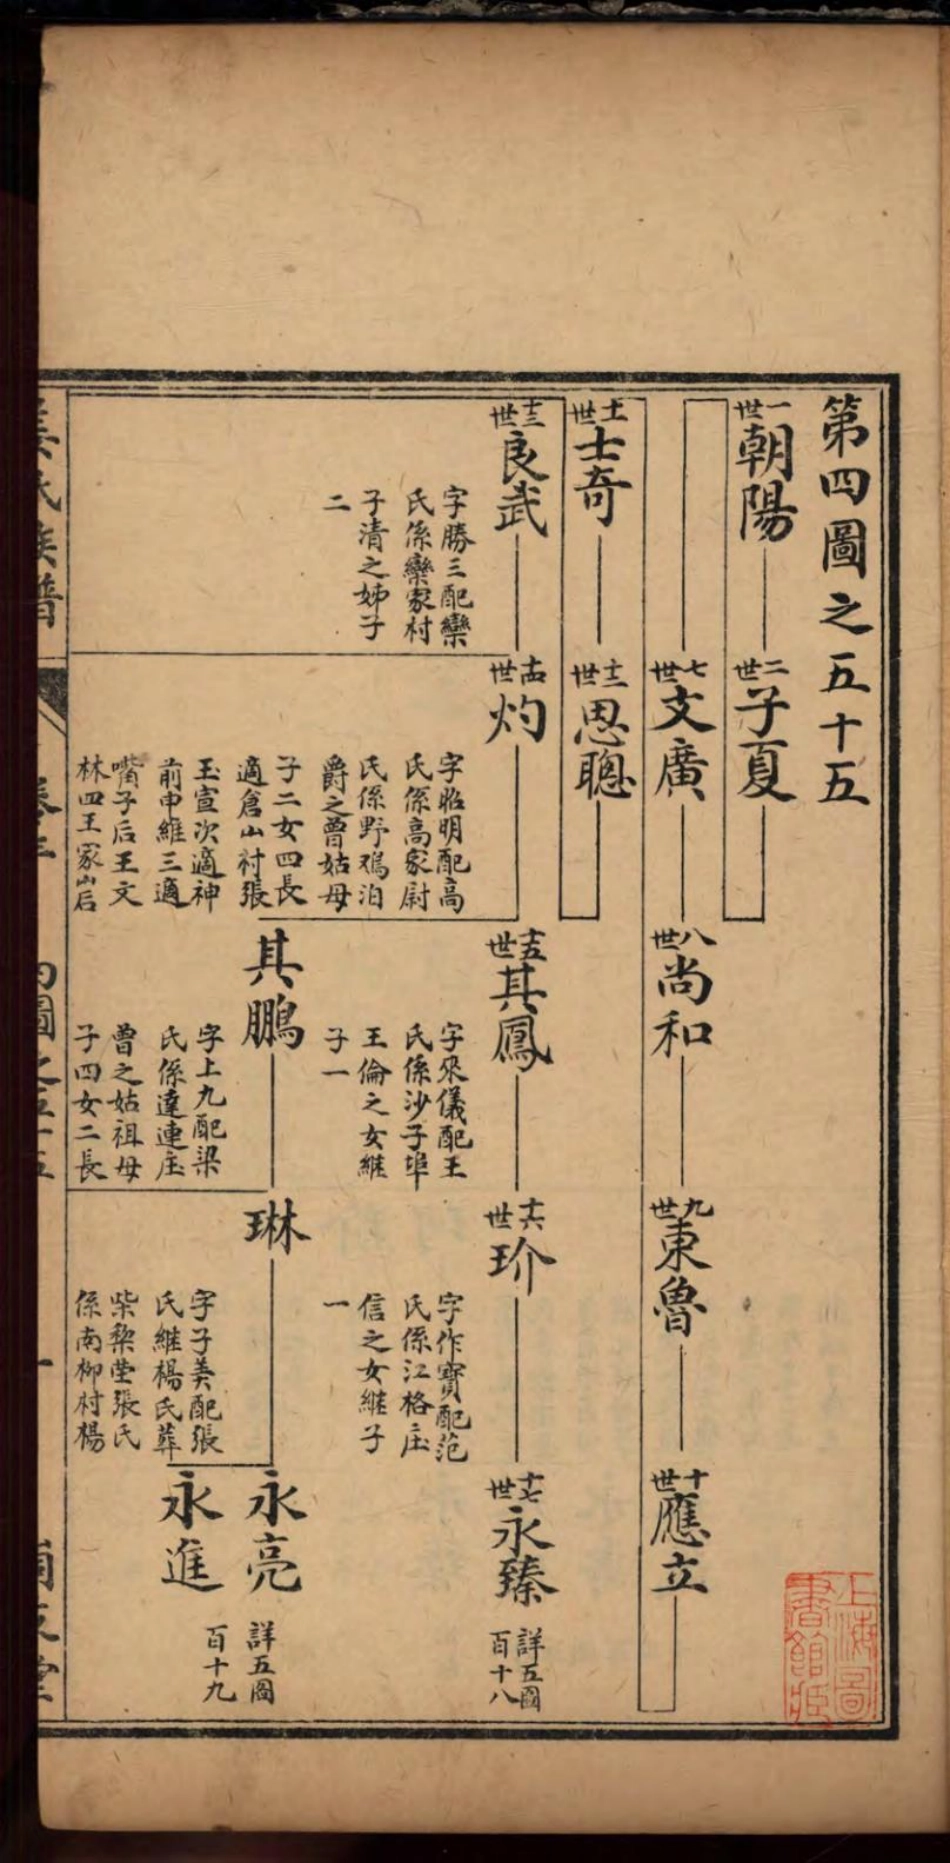 第四圖之五十五
一世
朝陽
二世
子夏
七世
文廣
八世
尚和
九世
東魯
十世
應立
十一世
士奇
十二世
思聰
十三世
良武
字勝三配欒
氏係欒家村
子清之姊子
二
十四世
灼
字昭明配高
氏係高家尉
氏係野鴉泊
爵之曾姑母
子二女四長
適倉山村張
玉宣次適神
前申維三適
嘴子后王文
林四王家山后
十五世
其鳳
字來儀配王
氏係沙子埠
王倫之女継
子一
十六世
玠
字作寶配范
氏係江格庄
信之女継子
一
十七世
永臻
詳五圖
百十八
其鵬
字上九配梁
氏係達連庄
曾之姑祖母
子四女二長
琳
字子美配張
氏継楊氏葬
柴棃瑩張氏
係南柳村楊
永亮
永進
詳五圖
百十九
上海圖
書館藏